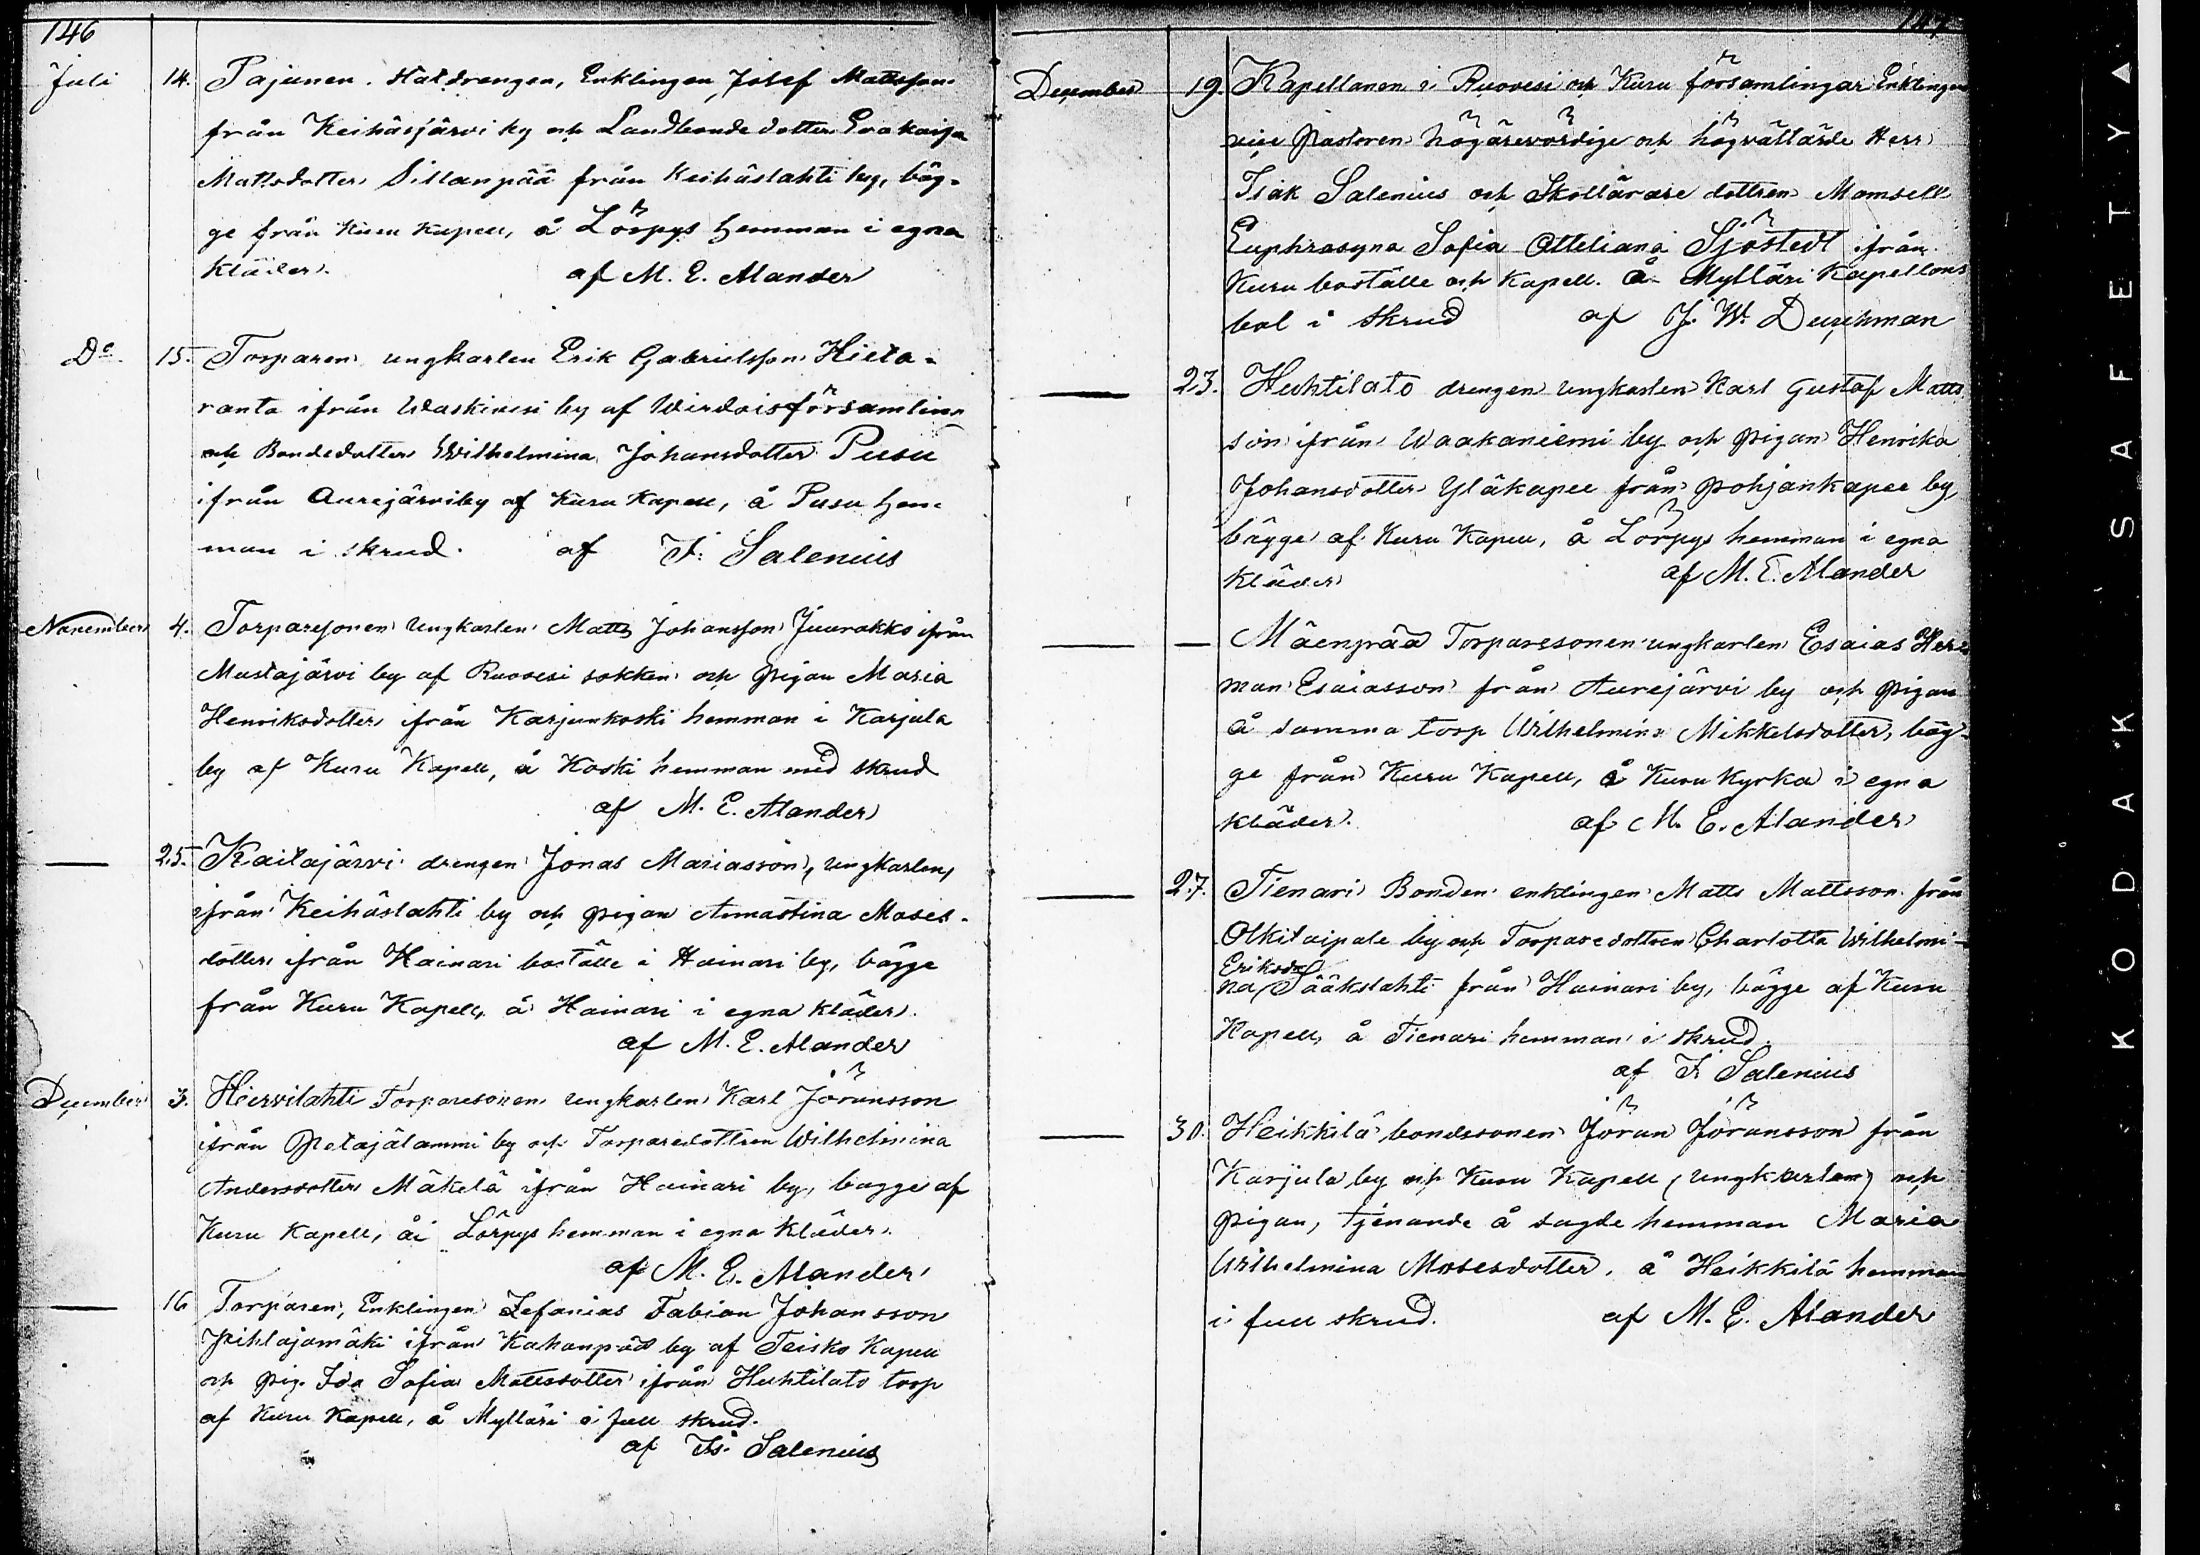 146
Juli 14. Pajunen. Hatdrengen, Enklingen Josef Mattsson
från Keihäsjärvi by och Landbonde dotter Evakaisa
Mattsdotter Sillanpää från Keihäslahti by, båg-
ge från Kuru Kapell, å Lörpys hemman i egna
kläder. af M. E. Alander
Do 15. Torparen ungkarlen Erik Gabrielsson Hieta-
ranta ifrån Waskivesi by af Wirdois församling
och Bondedotter Wilhelmina Johansdotter Pusu
ifrån Aurejärvi by af Kuru Kapell, å Pusu hem-
man i skrud. af I. Salenius
November 4. Torparesonen Ungkarlen Matts Johansson Juurakko ifrån
Mustajärvi by af Ruovesi sokken och pigan Maria
Henriksdotter ifrån Karjunkoski hemman i Karjula
by af Kuru Kapell, å Koski hemman med skrud
af M. E. Alander
— 25. Kaitajärvi drengen Jonas Mariasson, ungkarlen,
ifrån Keihäslahti by och pigan Annastina Moses-
dotter ifrån Hainari boställe i Hainari by, bågge
från Kuru Kapell, å Hainari i egna kläder.
af M. E. Alander
December 3. Hiervilahti Torparesonen ungkarlen Karl Jöransson
ifrån Petäjälammi by och Torparedottren Wilhelmina
Andersdotter Mäkelä ifrån Hainari by, bagge af
Kuru Kapell, å Lörpys hemman i egna kläder.
af M. E. Alander
— 16 Torparen, Enklingen Zefanias Fabian Johansson
Pihlajamäki ifrån Kahanpää by af Teisko Kapell
och pig. Ida Sofia Mattsdotter ifrån Huhtilato torp
af Kuru Kapell, å Mylläri i full skrud.
af Is. Salenius
147
December 19. Kapellanen i Ruovesi och Kuru församlingar Enklingen
vice Pastoren högärevördige och högvällärde Herr
Isak Salenius och Skollärare dottren Mamsell
Euphrosyna Sofia Otteliana Sjöstedt ifrån
Kuru boställe och Kapell. å Mylläri Kapellans
bol i skrud af J. W. Durchman
— 23. Huhtilato drengen ungkarlen Karl Gustaf Matts
son ifrån Waakaniemi by och pigan Henrika
Johansdotter Yläkapee från Pohjankapee by
bägge af Kuru Kapell, å Lörpys hemman i egna
kläder af M. E. Alander
— — Mäenpää Torparesonen ungkarlen Esaias Her
man Esaiasson från Aurejärvi by och pigan
å samma torp Wilhelmina Mikkelsdotter, båg-
ge från Kuru Kapell, å Kuru Kyrka i egna
kläder. af M. E. Alander
— 27. Tienari Bonden enklingen Matts Mattsson från
Olkitaipale by och Torparedottren Charlotta Wilhelmi-
Eriksdr
na Sääkslahti från Hainari by, bägge af Kuru
Kapell, å Tienari hemman i skrud.
af I. Salenius
— 30. Heikkilä bondssonen Jöran Jöransson från
Karjula by och Kuru Kapell (ungkarlen) och
pigan, tjenande å sagde hemman Maria
Wilhelmina Mosesdotter, å Heikkilä hemman
i full skrud. af M. E. Alander
KODAK SAFETY